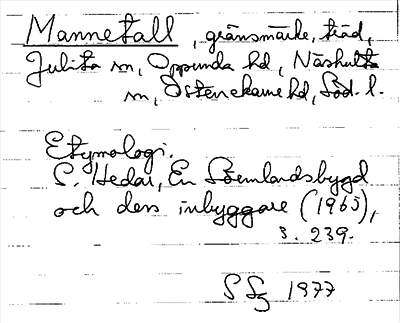 Mannetall, gränsmärke, träd,
Julita sn, Oppunda hd, Näshulta
sn, Österrekarne hd, Söd. l.
Etymologi.
S. Hedar, En Sörmlandsbygd
och dess inbyggare (1965),
s. 239.
1977